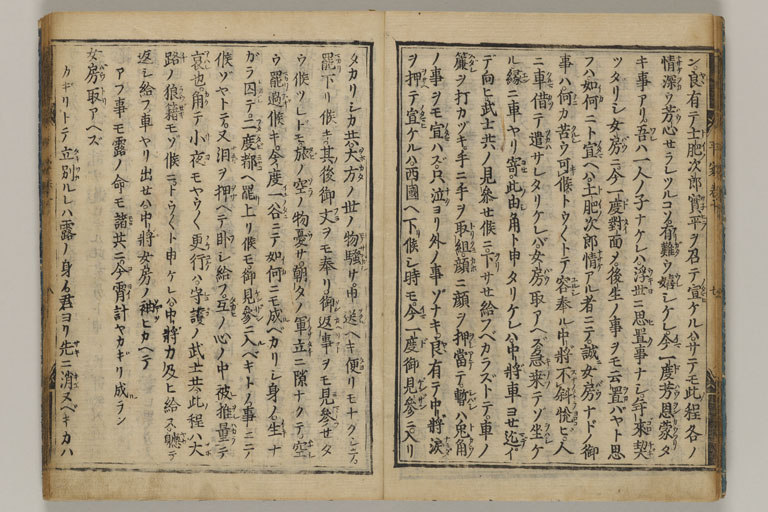 ン良有テ土肥次郎實平ヲ召テ宣ケルハサテモ此程各ノ
情深ウ芳心セラレツルコソ有難ウ嬉シケレ今一度芳恩蒙タ
キ事アリ吾ハ一人ノ子ナケレハ浮世ニ思置事ナシ年來契
ツタリシ女房ニ今一度對面ノ後生ノ事ヲモ云置バヤト思
フハ如何ニト宣ヘハ土肥次郎情アル者ニテ誠女房ナドノ御
事ハ何カ苦ウ可候トウ〳〵トテ容奉ル中將不斜悦ヒ人
ニ車借テ遣サレタリケレハ女房取アヘズ急乘テゾ坐ケ
ル縁ニ車ヤリ寄テ此由角ト申タリケレハ中將車ヨセ迄イ
デ向ヒ武士共ノ見參セ候ニ下サセ給フベカラズトテ車ノ
簾ヲ打カツキ手ニ手ヲ取組顔ニ顔ヲ押當テ暫ハ兎角
ノ事ヲモ宣ハズ只泣ヨリ外ノ事ゾナキ良有テ中將涙
ヲ押テ宣ケルハ西國ヘ下候シ時モ今一度御見參ニ入リ
タカリシカ共大方ノ世ノ物騒サ申送ヘキ便リモナクシテ
罷下リ候キ其後御文ヲモ奉リ御返事ヲモ見參セタ
ウ候ツレトモ旅ノ空ノ物憂サ朝夕ノ軍立ニ隙ナクテ空
ウ罷過候キ今度一谷ニテ如何ニモ成ベカリシ身ノ生ナ
ガラ囚テ二度都ヘ罷上リ候モ御見參ニ入ベキトノ事ニテ
候ゾヤトテ又涙ヲ押ヘテ臥シ給フ互ノ心ノ中被推量テ
哀也角テ小夜モヤウ〳〵更行ハ守護ノ武士共此程ハ大
路ノ狼藉モゾ候ニトウ〳〵ト申ケレハ中將力及ヒ給ス聽テ
返シ給フ車ヤリ出セハ中將女房ノ袖ヒカヘテ
アフ事モ露ノ命モ諸共ニ今宵計ヤカギリ成ラン
女房取アヘズ
カギリトテ立別ルレハ露ノ身ノ君ヨリ先ニ消ヌベキカハ